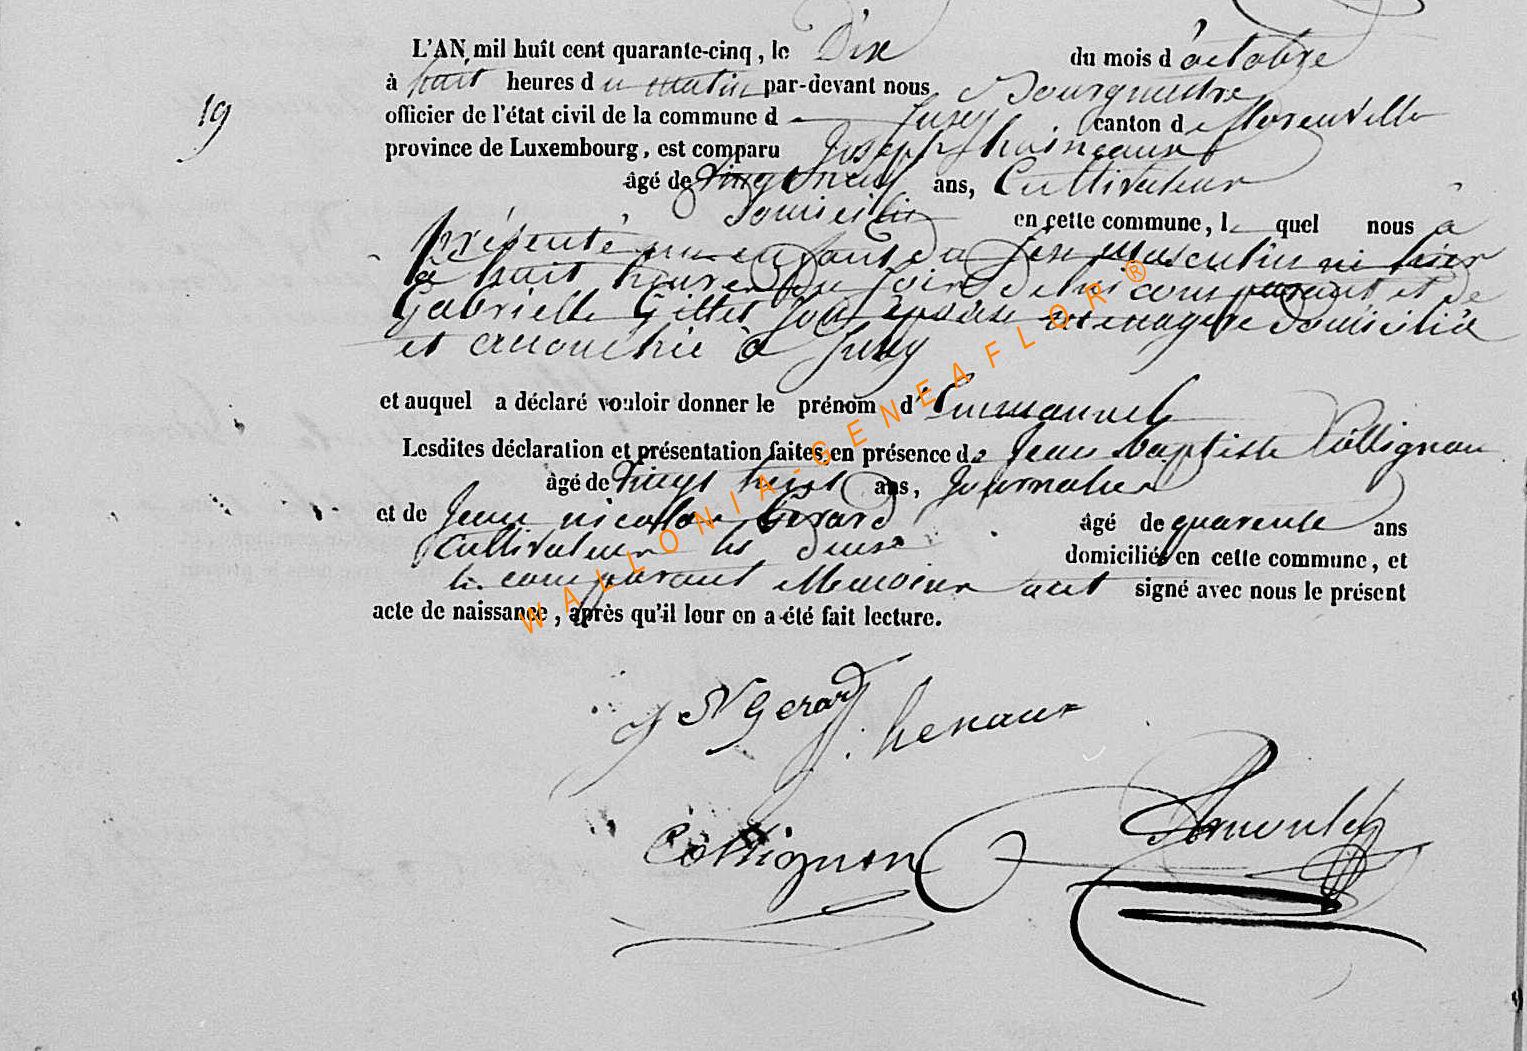 L'AN mil huit cent quarante-cinq, le Dix du mois d'octobre
à huit heures du matin par-devant nous Bourgmestre
19
officier de l'état civil de la commune d Jusey canton de florenville
province de Luxembourg, est comparu Joseph
âgé de vingt neuf ans, Cultivateur
Domicilié en cette commune, le quel nous a
présenté un enfant du sexe Masculin né hier
à huit heures du soir de lui comparant et de
Gabrielle Gillet son épouse menagere domiciliée
et accouchée à Jusey
et auquel a déclaré vouloir donner le prénom d'Emmanuel
Lesdites déclaration et présentation faites en présence de Jean baptiste Collignon
âgé de vingt huit ans, Journalier
et de Jean nicolas Gérard âgé de quarente ans
Cultivateur les deux domiciliés en cette commune, et
le comparant et témoins ont signé avec nous le présent
acte de naissance, après qu'il leur en a été fait lecture.
J N Gerard
henaux
Collignon
WALLONIA-GENEAFLOR®